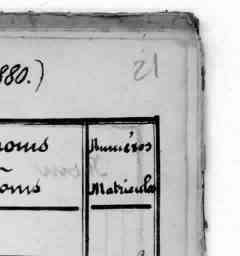 880.)
21
noms
Numéros
noms
Matricules